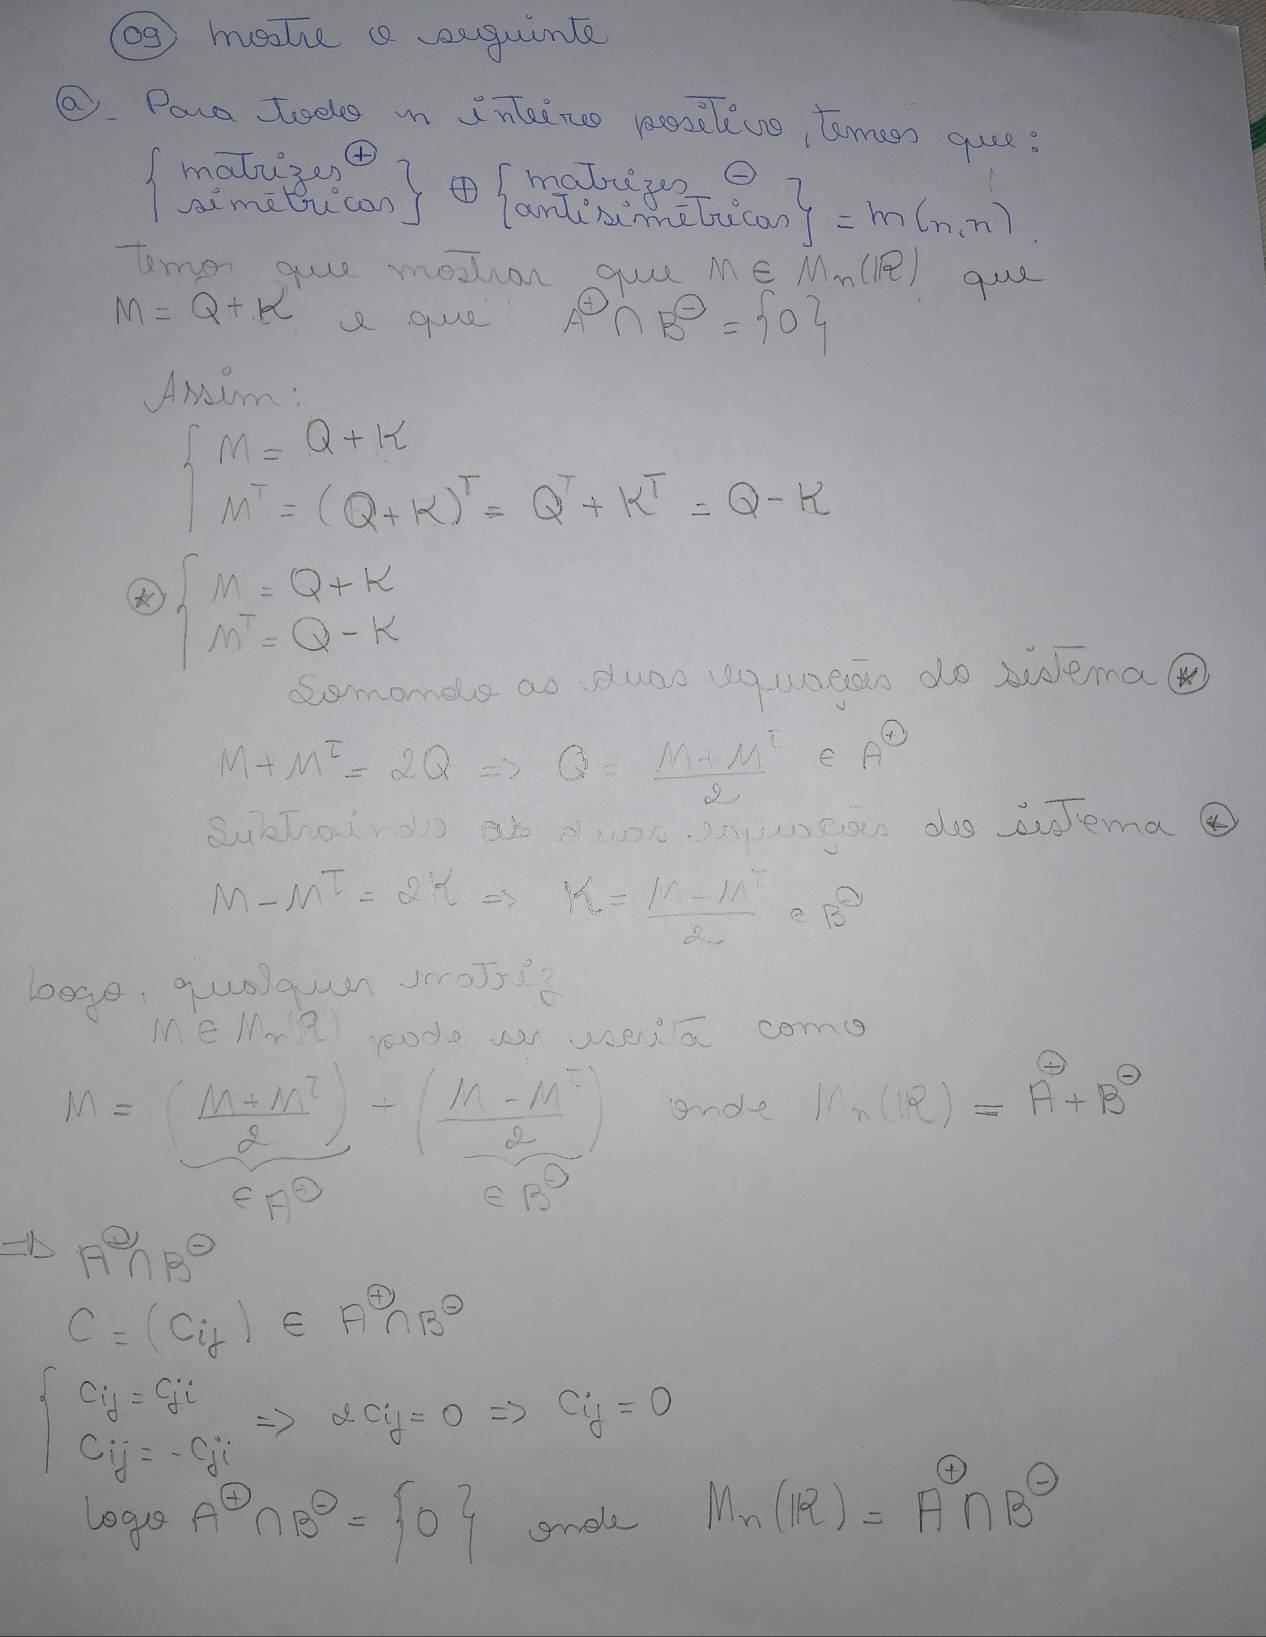 09 mostre o seguinte
a - Para todo n inteiro positivo, temos que:
{matrizes simétricas}⊕ ⊕ {matrizes antisimétricas}⊖ = M(n,n).
Temos que mostrar que M ∈ Mn(IR) que
M = Q + K e que A⊕ ∩ B⊖ = {0}
Assim:
{ M = Q + K
M^T = (Q+K)^T = Q^T + K^T = Q - K
* { M = Q + K
M^T = Q - K
Somando as duas equações do sistema *
M + M^T = 2Q => Q = (M + M^T)/2 ∈ A⊕
Subtraindo as duas equações do sistema *
M - M^T = 2K => K = (M - M^T)/2 ∈ B⊖
Logo, qualquer matriz
M ∈ Mn(IR) pode ser escrita como
M = ((M + M^T)/2) + ((M - M^T)/2) onde Mn(IR) = A⊕ + B⊖
∈ A⊕ ∈ B⊖
=> A⊕ ∩ B⊖
C = (Cij) ∈ A⊕ ∩ B⊖
{ Cij = Cji
Cij = -Cji => 2Cij = 0 => Cij = 0
Logo A⊕ ∩ B⊖ = {0} onde Mn(IR) = A⊕ ∩ B⊖